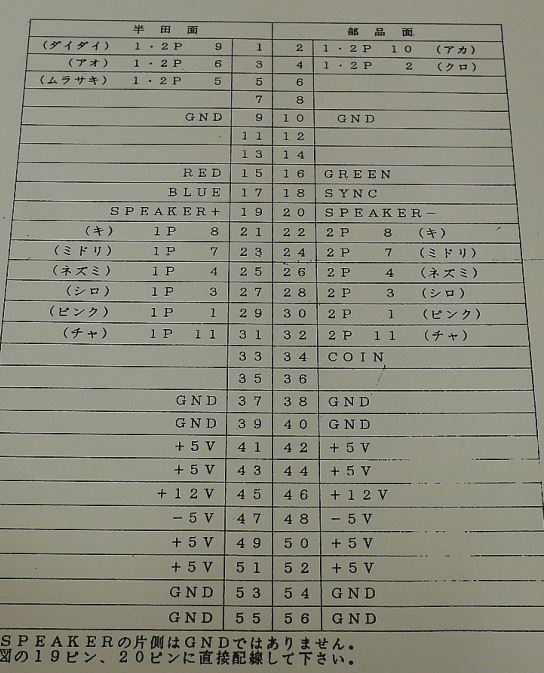 半田面 部品面
(ダイダイ) 1・2P 9 1 2 1・2P 10 (アカ)
(アオ) 1・2P 6 3 4 1・2P 2 (クロ)
(ムラサキ) 1・2P 5 5 6
7 8
GND 9 10 GND
11 12
13 14
RED 15 16 GREEN
BLUE 17 18 SYNC
SPEAKER+ 19 20 SPEAKER−
(キ) 1P 8 21 22 2P 8 (キ)
(ミドリ) 1P 7 23 24 2P 7 (ミドリ)
(ネズミ) 1P 4 25 26 2P 4 (ネズミ)
(シロ) 1P 3 27 28 2P 3 (シロ)
(ピンク) 1P 1 29 30 2P 1 (ピンク)
(チャ) 1P 11 31 32 2P 11 (チャ)
33 34 COIN
35 36
GND 37 38 GND
GND 39 40 GND
+5V 41 42 +5V
+5V 43 44 +5V
+12V 45 46 +12V
−5V 47 48 −5V
+5V 49 50 +5V
+5V 51 52 +5V
GND 53 54 GND
GND 55 56 GND
SPEAKERの片側はGNDではありません。
図の19ピン、20ピンに直接配線して下さい。